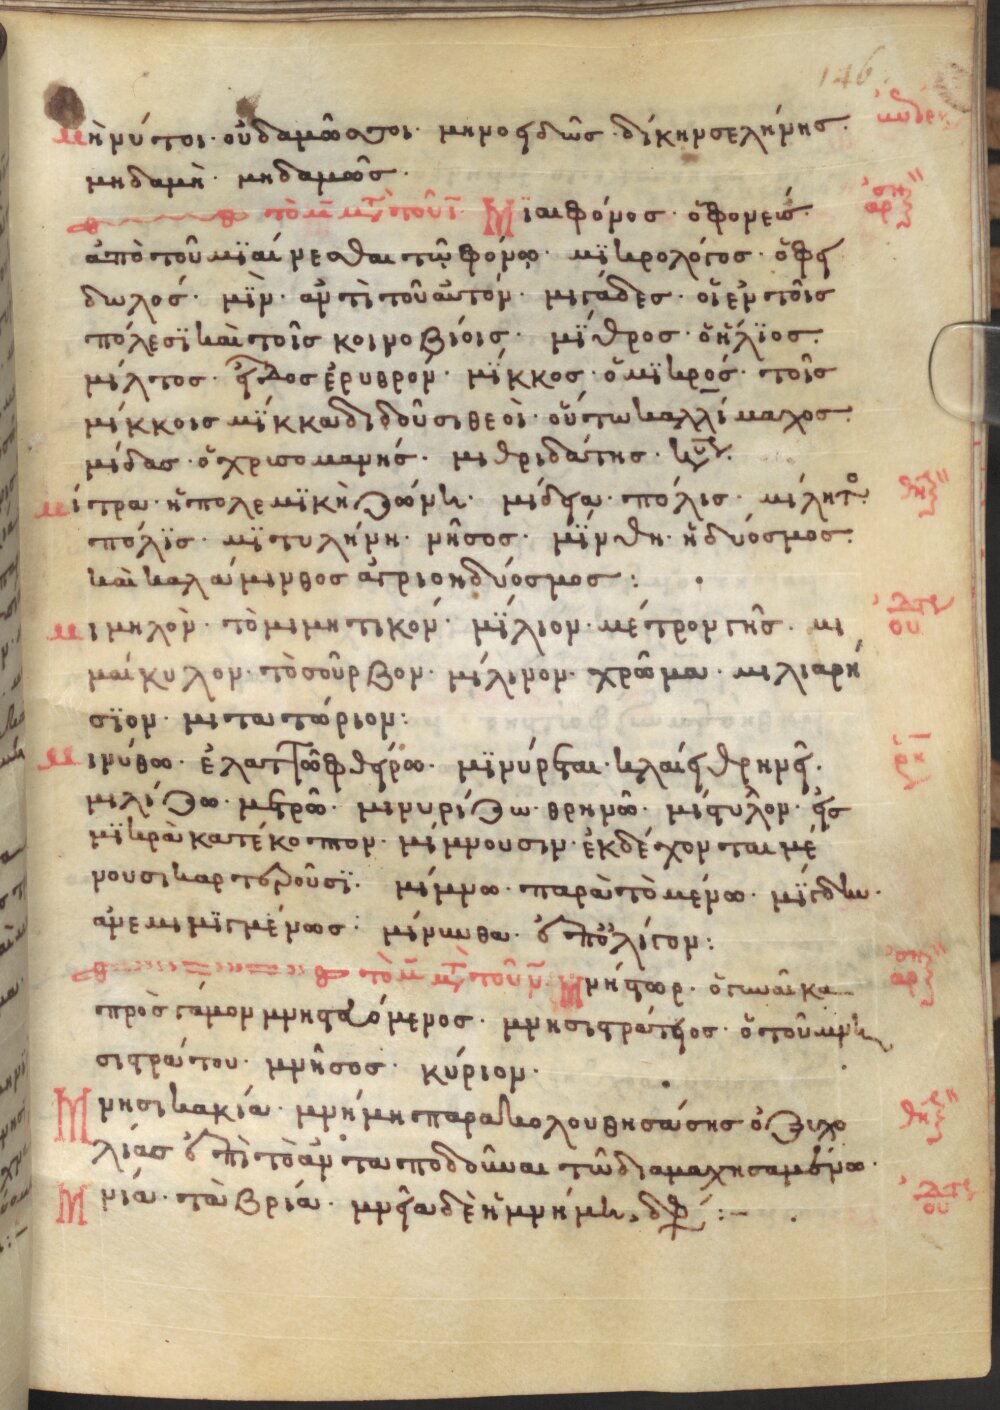 146
Μὴ μύτοι· οὐδαμῶς τοι· μηνοειδῶς· δίκην σελήνης·
μηδαμὴ· μηδαμῶς·
τὸ μ̅ μτ̀ τοῦ ι̅· Μϊαιφόνος· ὁ φονεύς·
ἀπὸ τοῦ μϊαίνεσθαι τῶ φόνω· μϊκρολόγος· ὁ φει
δωλός· μϊν· ἀντὶ τοῦ αὐτόν· μιγάδες· οἱ ἐν τοῖς
πόλεσϊ καὶ τοῖς κοινοβίοις· μϊθρος· ὁ ἥλϊος·
μίλτος· εἶδος ἐρυθρόν· μϊκκος· ὁ μϊκρός· τοῖς
μίκκοις μϊκκα διδοῦσι θεοὶ· οὕτω καλλίμαχος·
μίδας· ὁ χρισομανής· μιθριδάτης· κύ
μίτρα· ἡ πολεμϊκὴ ζώνη· μίδεια· πόλις· μίλητο
πόλϊς· μϊτυλήνη· νῆσος· μϊνθη· ἡδύοσμος·
καὶ καλάμινθος ἀγριοηδύοσμος:
Μιμηλὸν· τὸ μιμητικόν· μϊλιον· μέτρον γῆς· μι
μαίκυλον· τὸ σοῦρβον· μίλινον· χρῶμα· μιλιαρή
σϊον· μιτατώριον:
Μινύθω· ἐλαττῶ φθείρω· μϊνύρεται· κλαίει θρηνεῖ·
μιλίζω· μετρῶ· μινυρίζω· θρηνῶ· μίστυλον· εἰς
μϊκρὰ κατέκοπτον· μίμνουσιν· ἐκδέχονται μέ
νουσι καρτεροῦσϊ· μίμνω· παρὰ τὸ μένω· μϊγδην·
ἀνεμιμϊγμένως· μίνυνθα· ἐπ' ὀλίγον:
τὸ μ̅ μτ̀ τοῦ ν̅· Μνήστωρ· ὁ γυναῖκα
πρὸς γάμον μνηστευόμενος· μνησιστράτειος· ὁ τοῦ μνη
σιστράτου· μνῆσος· κύριον·
Μνησικακία· μνήμη παρακολουθησάσης ὀξυχο
λίας ἐπὶ τὸ ἀνταποδοῦναι τῶ διαμαχησαμένω·
Μνιά· τὰ βριά· μνεία δὲ ἡ μνήμη,